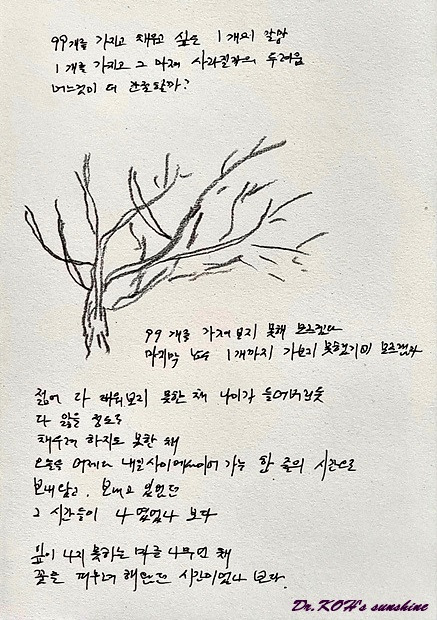 99개를 가지고 채우고 싶은 1개의 갈망
1개를 가지고 그 마저 사라질까의 두려움
어느것이 더 간절할까?
99개를 가져보지 못해 모르겠다
마지막 남은 1개까지 가보지 못했기에 모르겠다
젊어 다 채워보지 못한 채 나이가 들어버렸듯
다 잃을 정도로
채우려 하지도 못한 채
오늘을 어제와 내일사이에 이어 가는 한 줄의 시간으로
보내았고, 보내고 있었던
그 시간들이 나 였었나 보다
잎이 나지 못하는 마른 나무인 채
꽃을 피우려 해왔던 시간이었나 보다.
Dr.KOH's sunshine